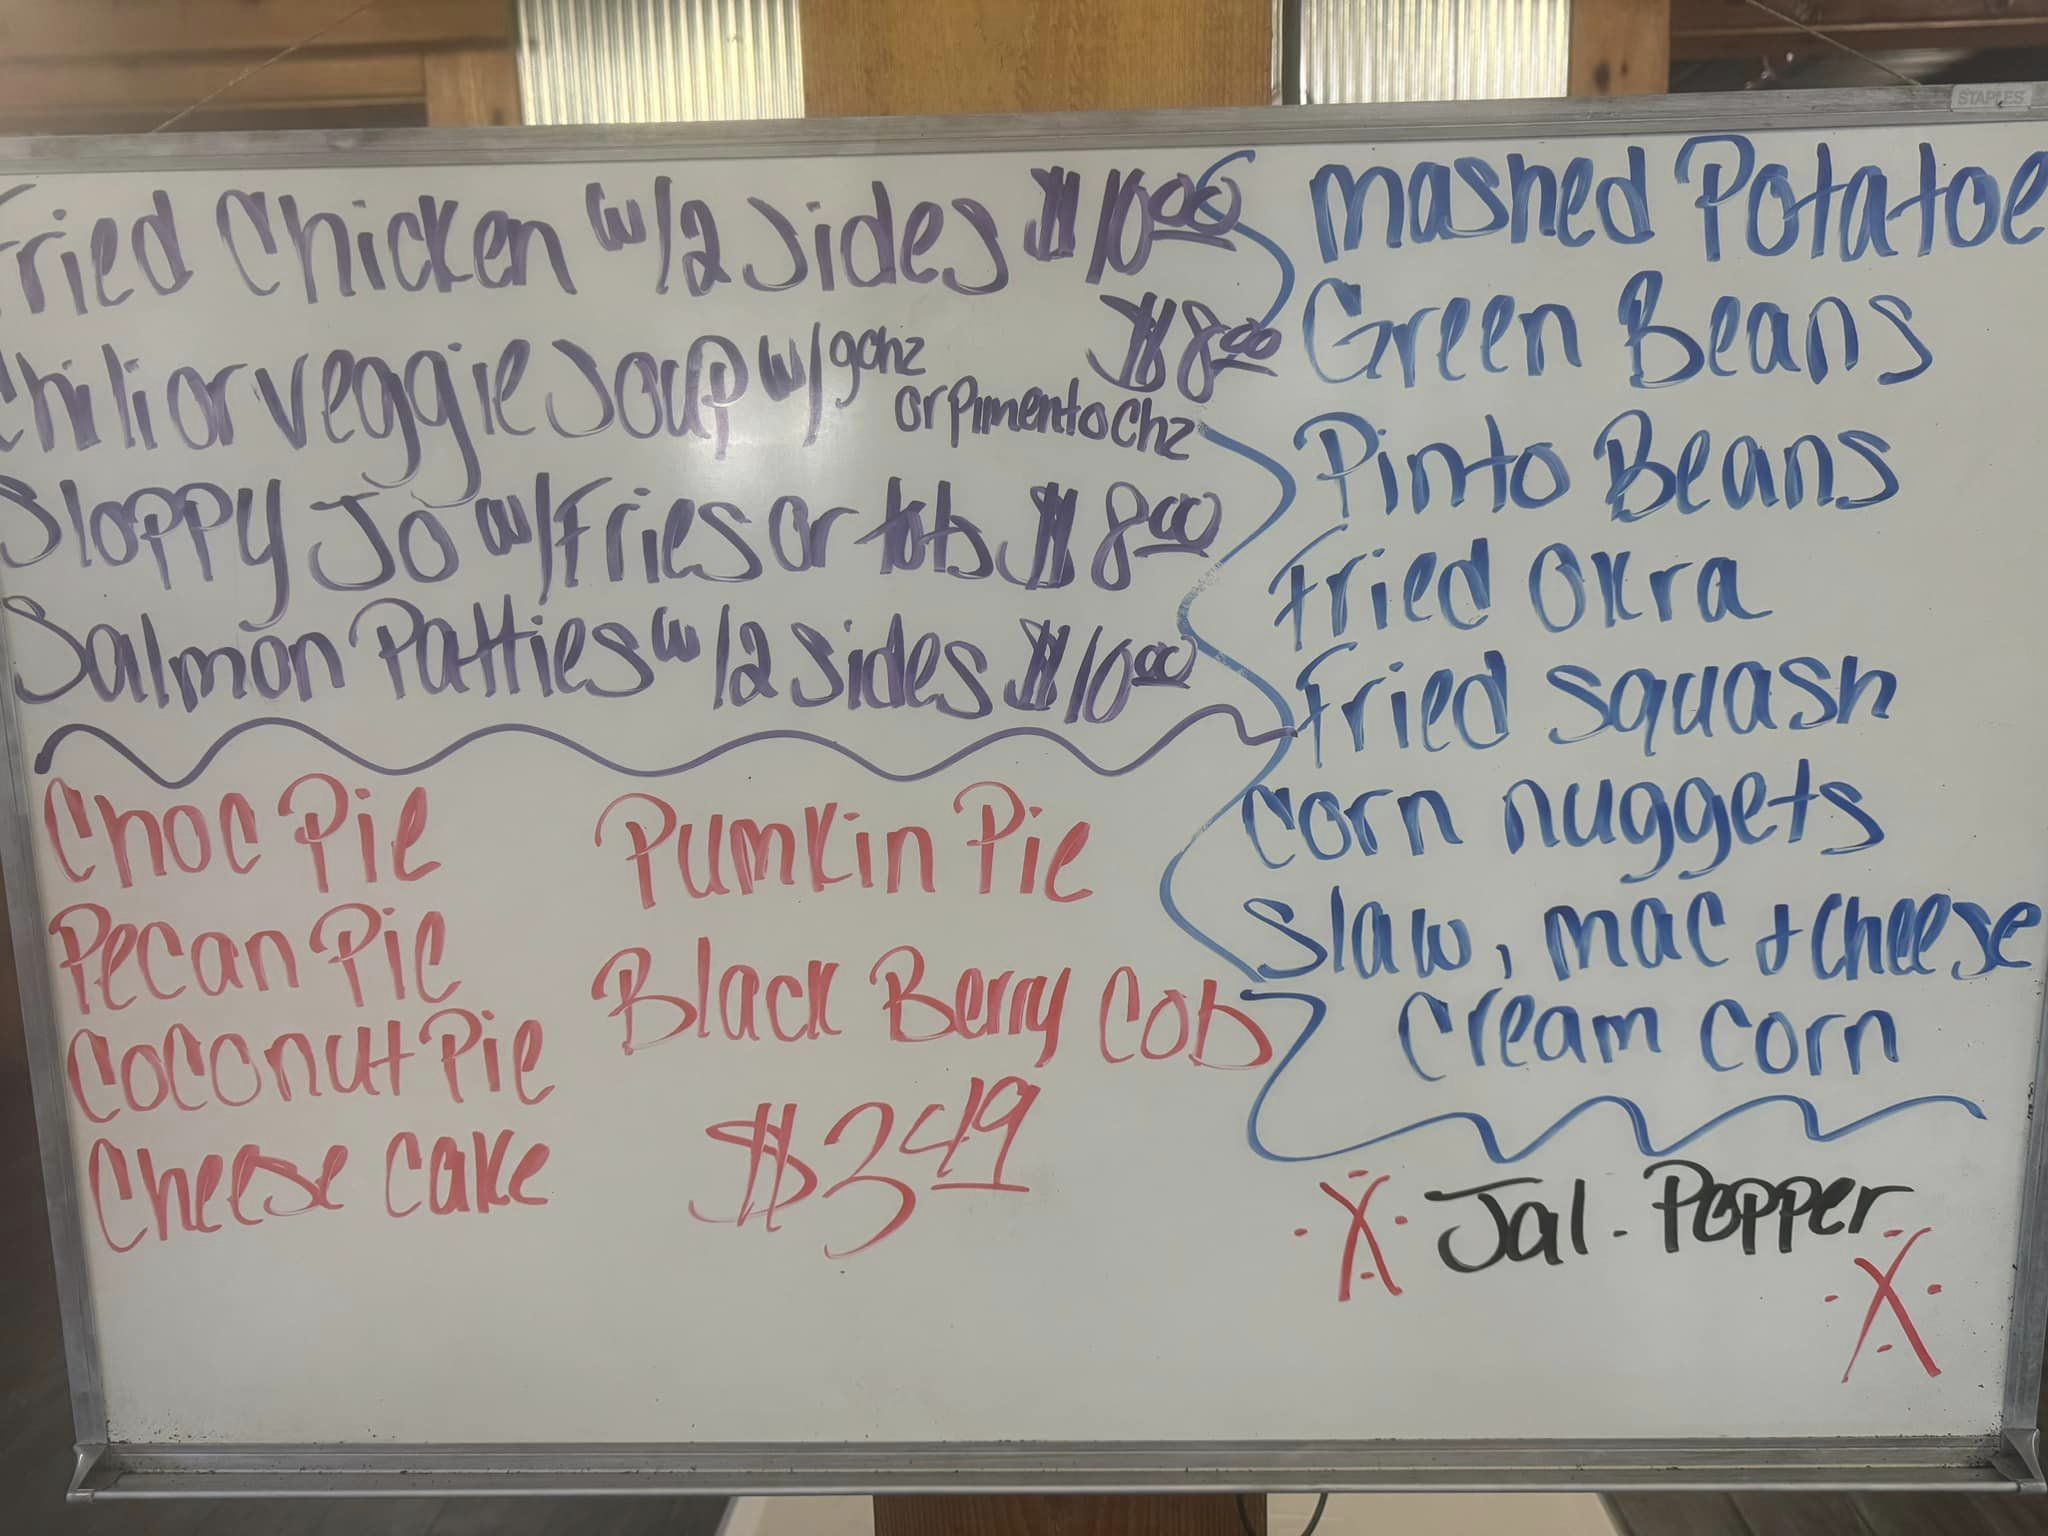 STAPLES
Fried Chicken w/2 sides $10.00
Chili or veggie soup w/ gchz
or Pimento Chz $8.00
Sloppy Jo w/ Fries or tots $8.00
Salmon Patties w/2 sides $10.00
Choc Pie
Pecan Pie
Coconut Pie
Cheese cake
Pumkin Pie
Black Berry COB
$3.49
mashed Potatoe
Green Beans
Pinto Beans
Fried Okra
Fried squash
corn nuggets
slaw, mac + cheese
cream corn
Jal. Popper